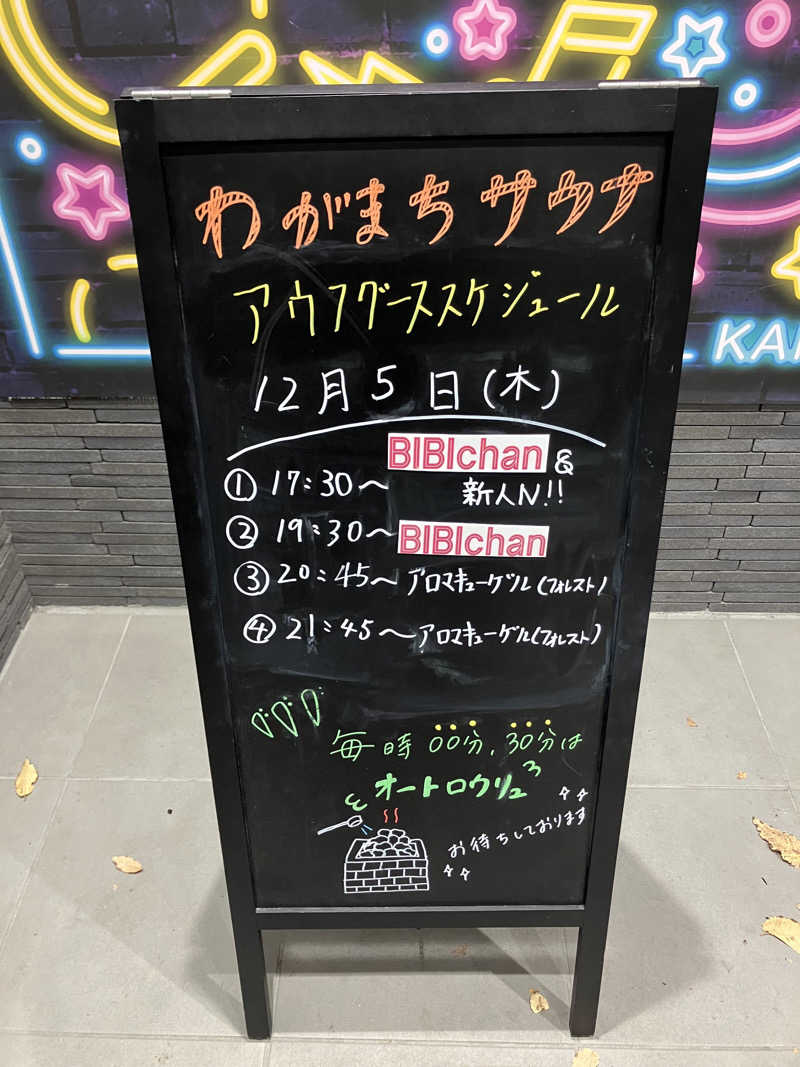 KA
わがまちサウナ
アウフグーススケジュール
12月5日(木)
① 17:30〜 BIBIchan &
新人N!!
② 19:30〜 BIBIchan
③ 20:45〜 アロマキューゲル(フォレスト)
④ 21:45〜 アロマキューゲル(フォレスト)
毎時00分、30分は
オートロウリュ
お待ちしております